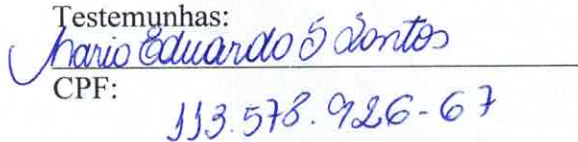 Testemunhas:
Mario Eduardo S Santos
CPF:
113.578.926-67